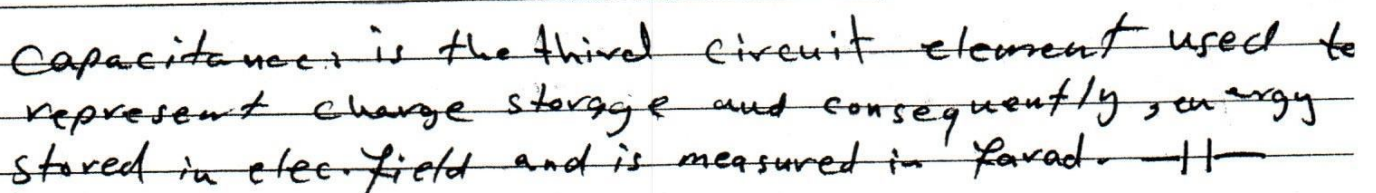 Capacitance: is the third circuit element used to
represent charge storage and consequently, energy
stored in elec. field and is measured in farad.